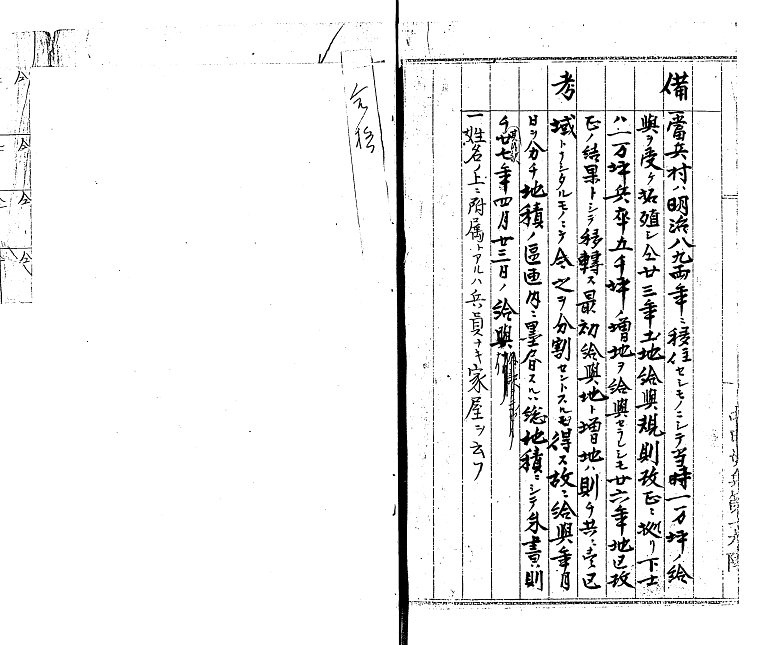 備考
一當兵村ハ明治八九両年ニ移住セシモノニシテ当時一万坪ノ給
與ヲ受ケ拓殖シ仝廿三年土地給與規則改正ニ拠リ下士
ハ一万坪兵卒五千坪ノ増地ヲ給與セラレシモ廿六年地区改
正ノ結果トシテ移轉ス最初給與地ト増地ハ則チ共ニ壱区
域トナシタルモノニテ今之ヲ分割セントスルモ得ス故ニ給與年月
日ヲ分チ地積ノ區画内ニ墨書スルハ総地積ニシテ朱書ハ則
チ廿七年四月廿三日ノ給與
一姓名ノ上ニ附属トアルハ兵員ナキ家屋ヲ云フ